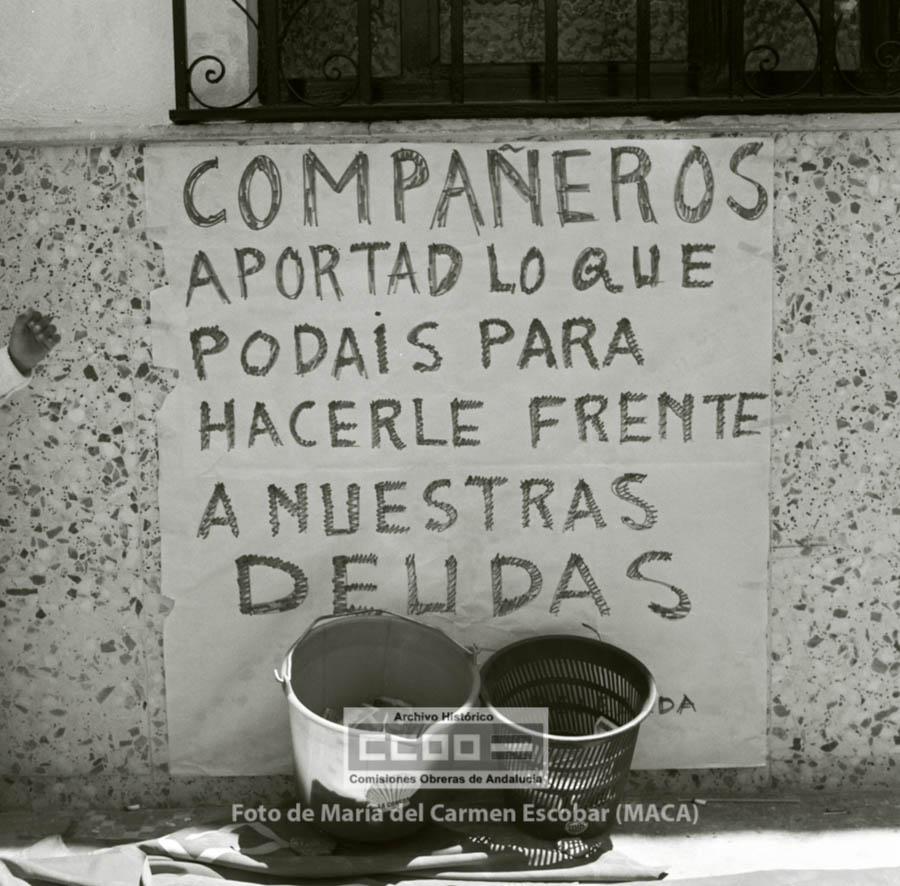 COMPAÑEROS
APORTAD LO QUE
PODAiS PARA
HACERLE FRENTE
A NUESTRAS
DEUDAS
DA
Archivo Histórico
CCOO
Comisiones Obreras de Andalucía
Foto de María del Carmen Escobar (MACA)